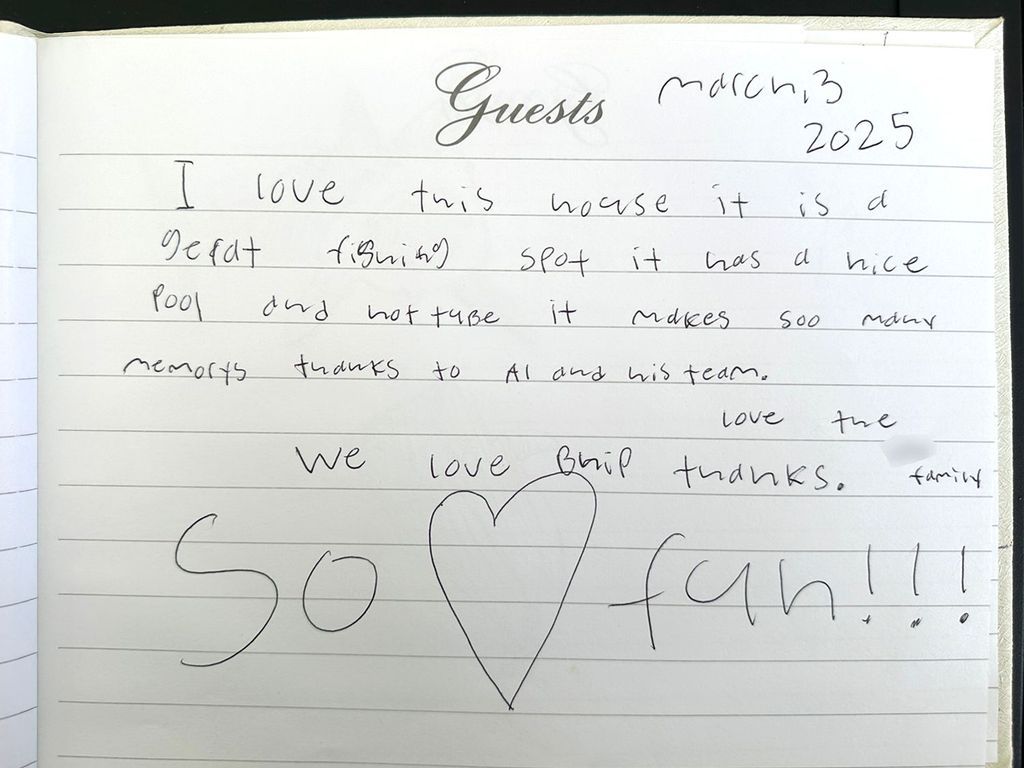 Guests
march, 3
2025
I love this house it is a
gerat fishing spot it has a nice
Pool and hot tube it makes soo many
memorys thanks to Al and his team.
love the
We love BhiP thanks. family
So fun!!!